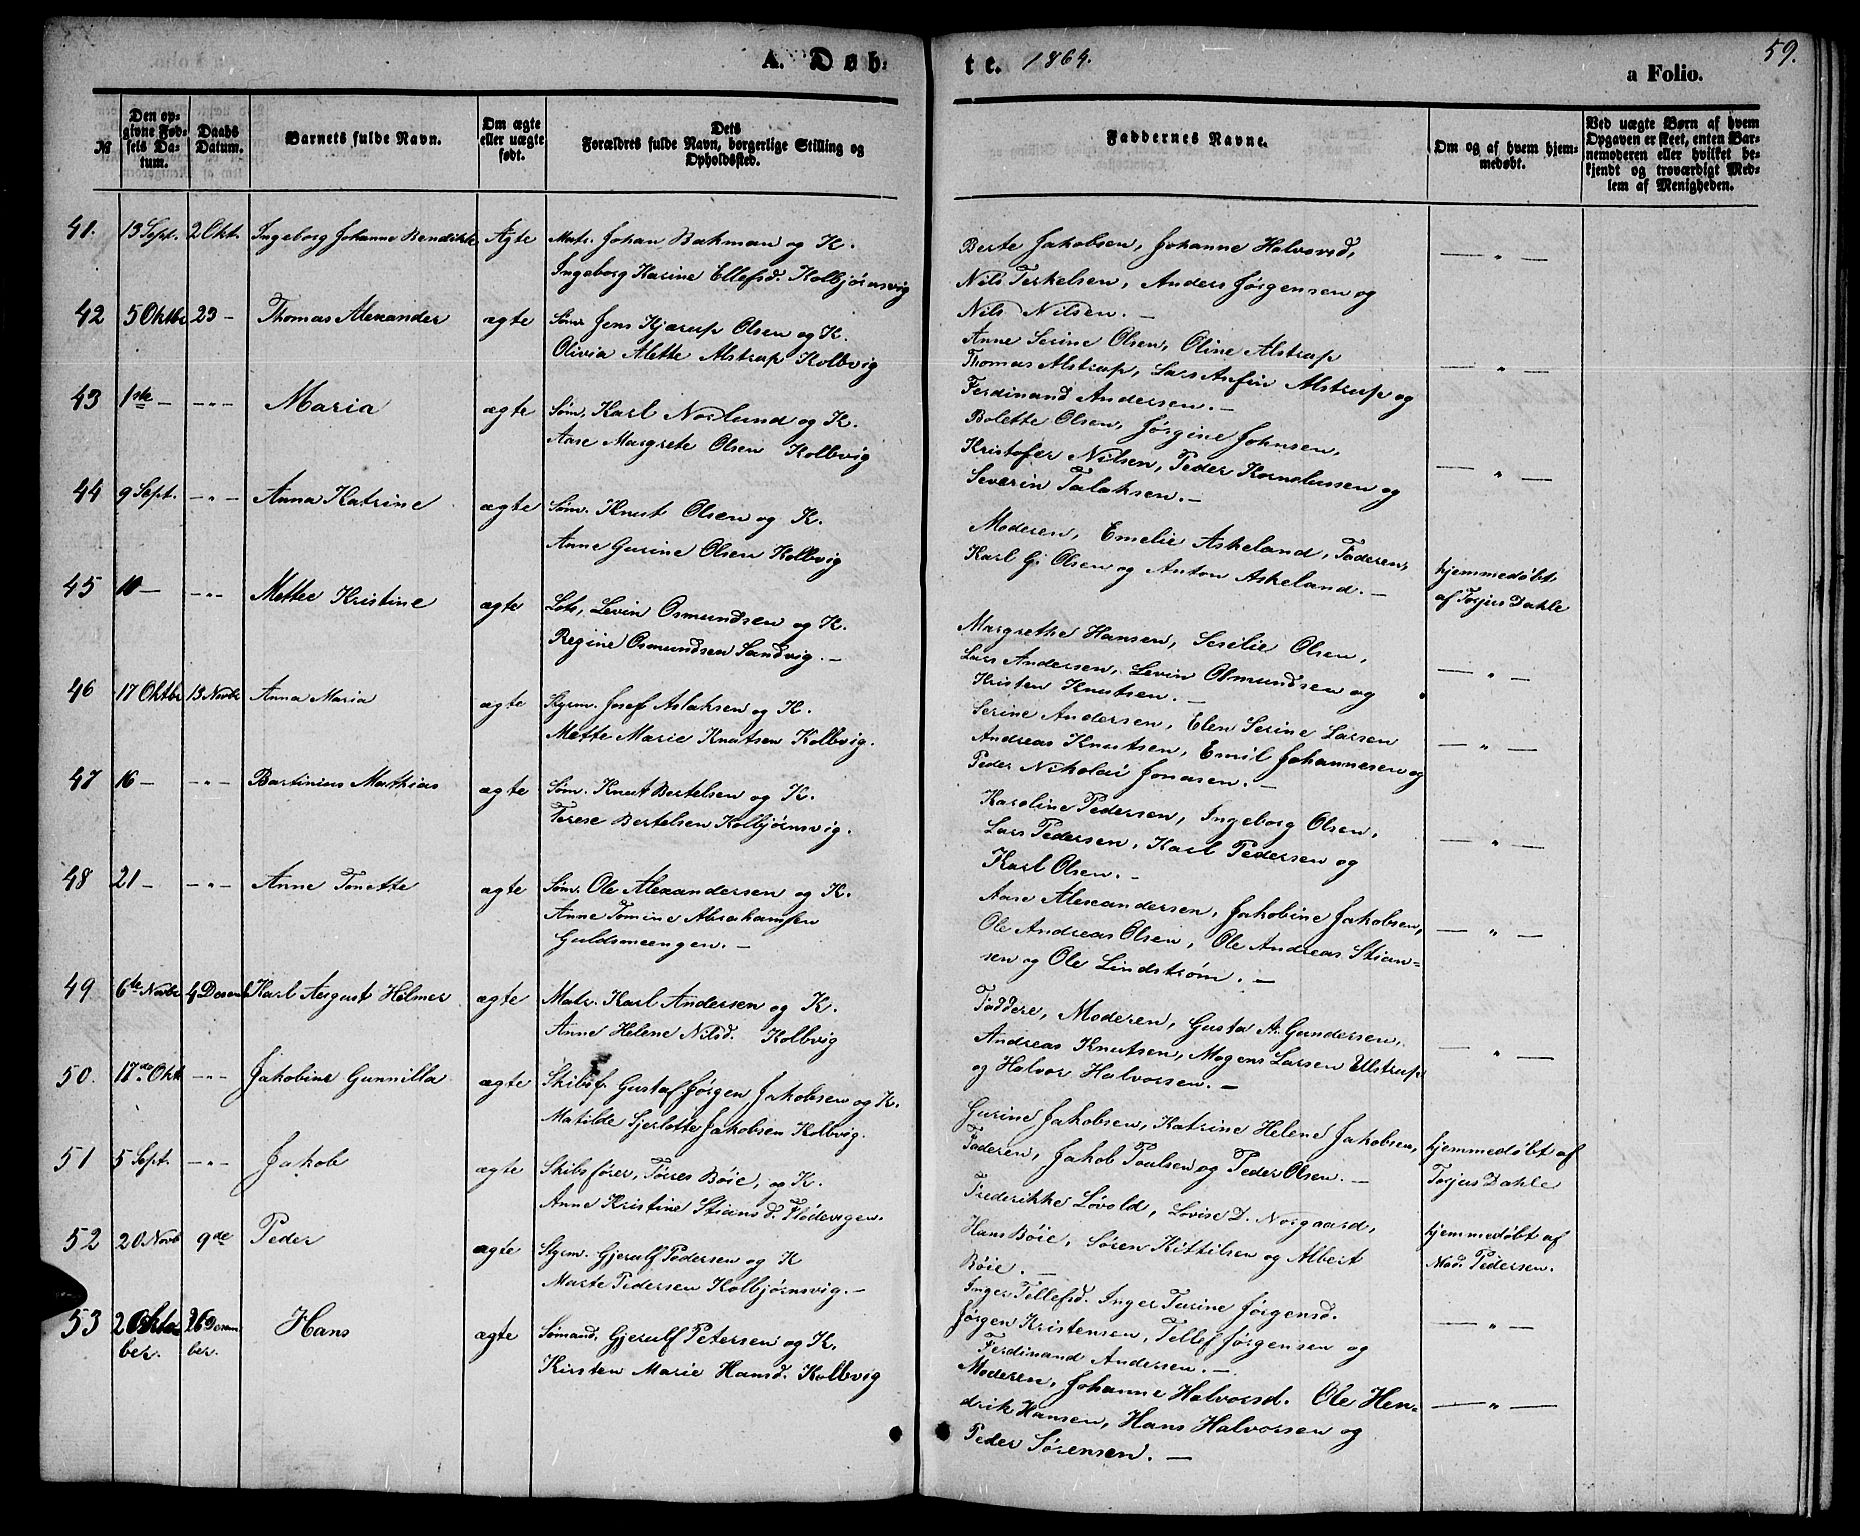 A. Døb-
te. 1864.
59.
a Folio.
№
Den op-
givne Fød-
sels Da-
tum.
Daabs
Datum.
Barnets fulde Navn.
Om ægte
eller uægte
født.
Dets
Forældres fulde Navn, borgerlige Stilling og
Opholdssted.
Faddernes Navne.
Om og af hvem hjem-
medøbt.
Ved uægte Børn af hvem
Opgaven er skeet, enten Bar-
nemoderen eller hvilket be-
kjendt og troværdigt Med-
lem af Menigheden.
41. 13 Sept. 2 Okt. Ingeborg Johanne Bendikte Ægte Matr. Johan Bakman og K.
Ingeborg Karine Ellefsd. Kolbjørnsvig
Berte Jakobsen, Johanne Halvorsd,
Nils Terkelsen, Anders Jørgensen og
Nils Nilsen. —
— " —
42 5 Oktbr 23 — Thomas Alexander ægte Søm. Jens Kjærup Olsen og K.
Olivia Alette Alstrup Kolbvig
Anne Serine Olsen, Oline Alstrup
Thomas Alstrup, Lars Anfin Alstrup og
Ferdinand Andersen. —
— " —
43 1ste — — " — Maria ægte Søm. Karl Norlund og K.
Aase Margrete Olsen Kolbvig
Bolette Olsen, Jørgine Johnsen,
Kristofer Nilsen, Peder Kornelussen og
Severin Talaksen. —
— " —
44 9 Sept. — " — Anna Katrine ægte Søm. Knut Olsen og K.
Anne Gurine Olsen Kolbvig
Moderen, Emelie Askeland, Faderen,
Karl G. Olsen og Anton Askeland. —
hjemmedøbt
af Torjus Dahle
45 10 — — " — Mettee Kristine ægte Lots, Levin Osmundsen og K.
Regine Osmundsen Sandvig. —
Margrethe Hansen, Seselie Olsen,
Lars Andersen, Levin Osmundsen og
Kristen Knutsen. —
— " —
46 17 Oktbr 13 Novbr Anna Maria ægte Styrm. Josef Aslaksen og K.
Mette Marie Knutsen Kolbvig.
Serine Andersen, Elen Serine Larsen
Andreas Knutsen, Emil Johannesen og
Peder Nikolai Jonasen. —
— " —
47 16 — — " — Bartinius Mathias ægte Søm. Knut Bertelsen og K.
Terese Bertelsen Kolbjørnsvig.
Karoline Pedersen, Ingeborg Olsen,
Lars Pedersen, Karl Pedersen og
Karl Olsen. —
— " —
48 21 — — " — Anne Tonette ægte Søm. Ole Alexandersen og K.
Anne Tomine Abrahamsen
Guldsmeengen. —
Aase Alexandersen, Jakobine Jakobsen,
Ole Andreas Olsen, Ole Andreas Stian-
sen og Ole Lindstrøm. —
— " —
49 6te Novbr 4 Desemb Karl August Helmer ægte Matr. Karl Andersen og K.
Anne Helene Nilsd. Kolbvig
Faddere, Moderen, Gusta A. Gundersen,
Andreas Knutsen, Mogens Larsen Ellstrup
og Halvor Halvorsen. —
— " —
50. 17de Okt — " — Jakobine Gunnilla ægte Skibsf. Gustaf Jørgen Jakobsen og K.
Matilde Sjerlotte Jakobsen Kolbvig.
Gurine Jakobsen, Katrine Helene Jakobsen,
Faderen, Jakob Poulsen og Peder Olsen. —
hjemmedøbt af
Torjus Dahle
51 5 Sept. — " — Jakob ægte Skibsfører, Tørres Bøie, og K.
Anne Kristine Stiansd. Flødevigen.
Frederikke Løvold, Lovise D. Norgaard,
Hans Bøie, Søren Kittilsen og Albert
Bøie. —
hjemmedøbt af
Mad. Pedersen.
52 20 Novb 9de Peder ægte Styrm. Gjerulf Pedersen og K
Marte Pedersen Kolbjørnsvig. —
Inger Tellefsd. Inger Turine Jørgensd.
Jørgen Kristensen, Tellef Jørgensen og
Ferdinand Andersen. —
— " —
53 2 Okto 26 Desem Hans ægte Sømand, Gjerulf Petersen og K.
ber. ber. Kirsten Marie Hansd. Kolbvig
Moderen, Johanne Halvorsd. Ole Hen-
drik Hansen, Hans Halvorsen og
Peder Sørensen. —
— " —